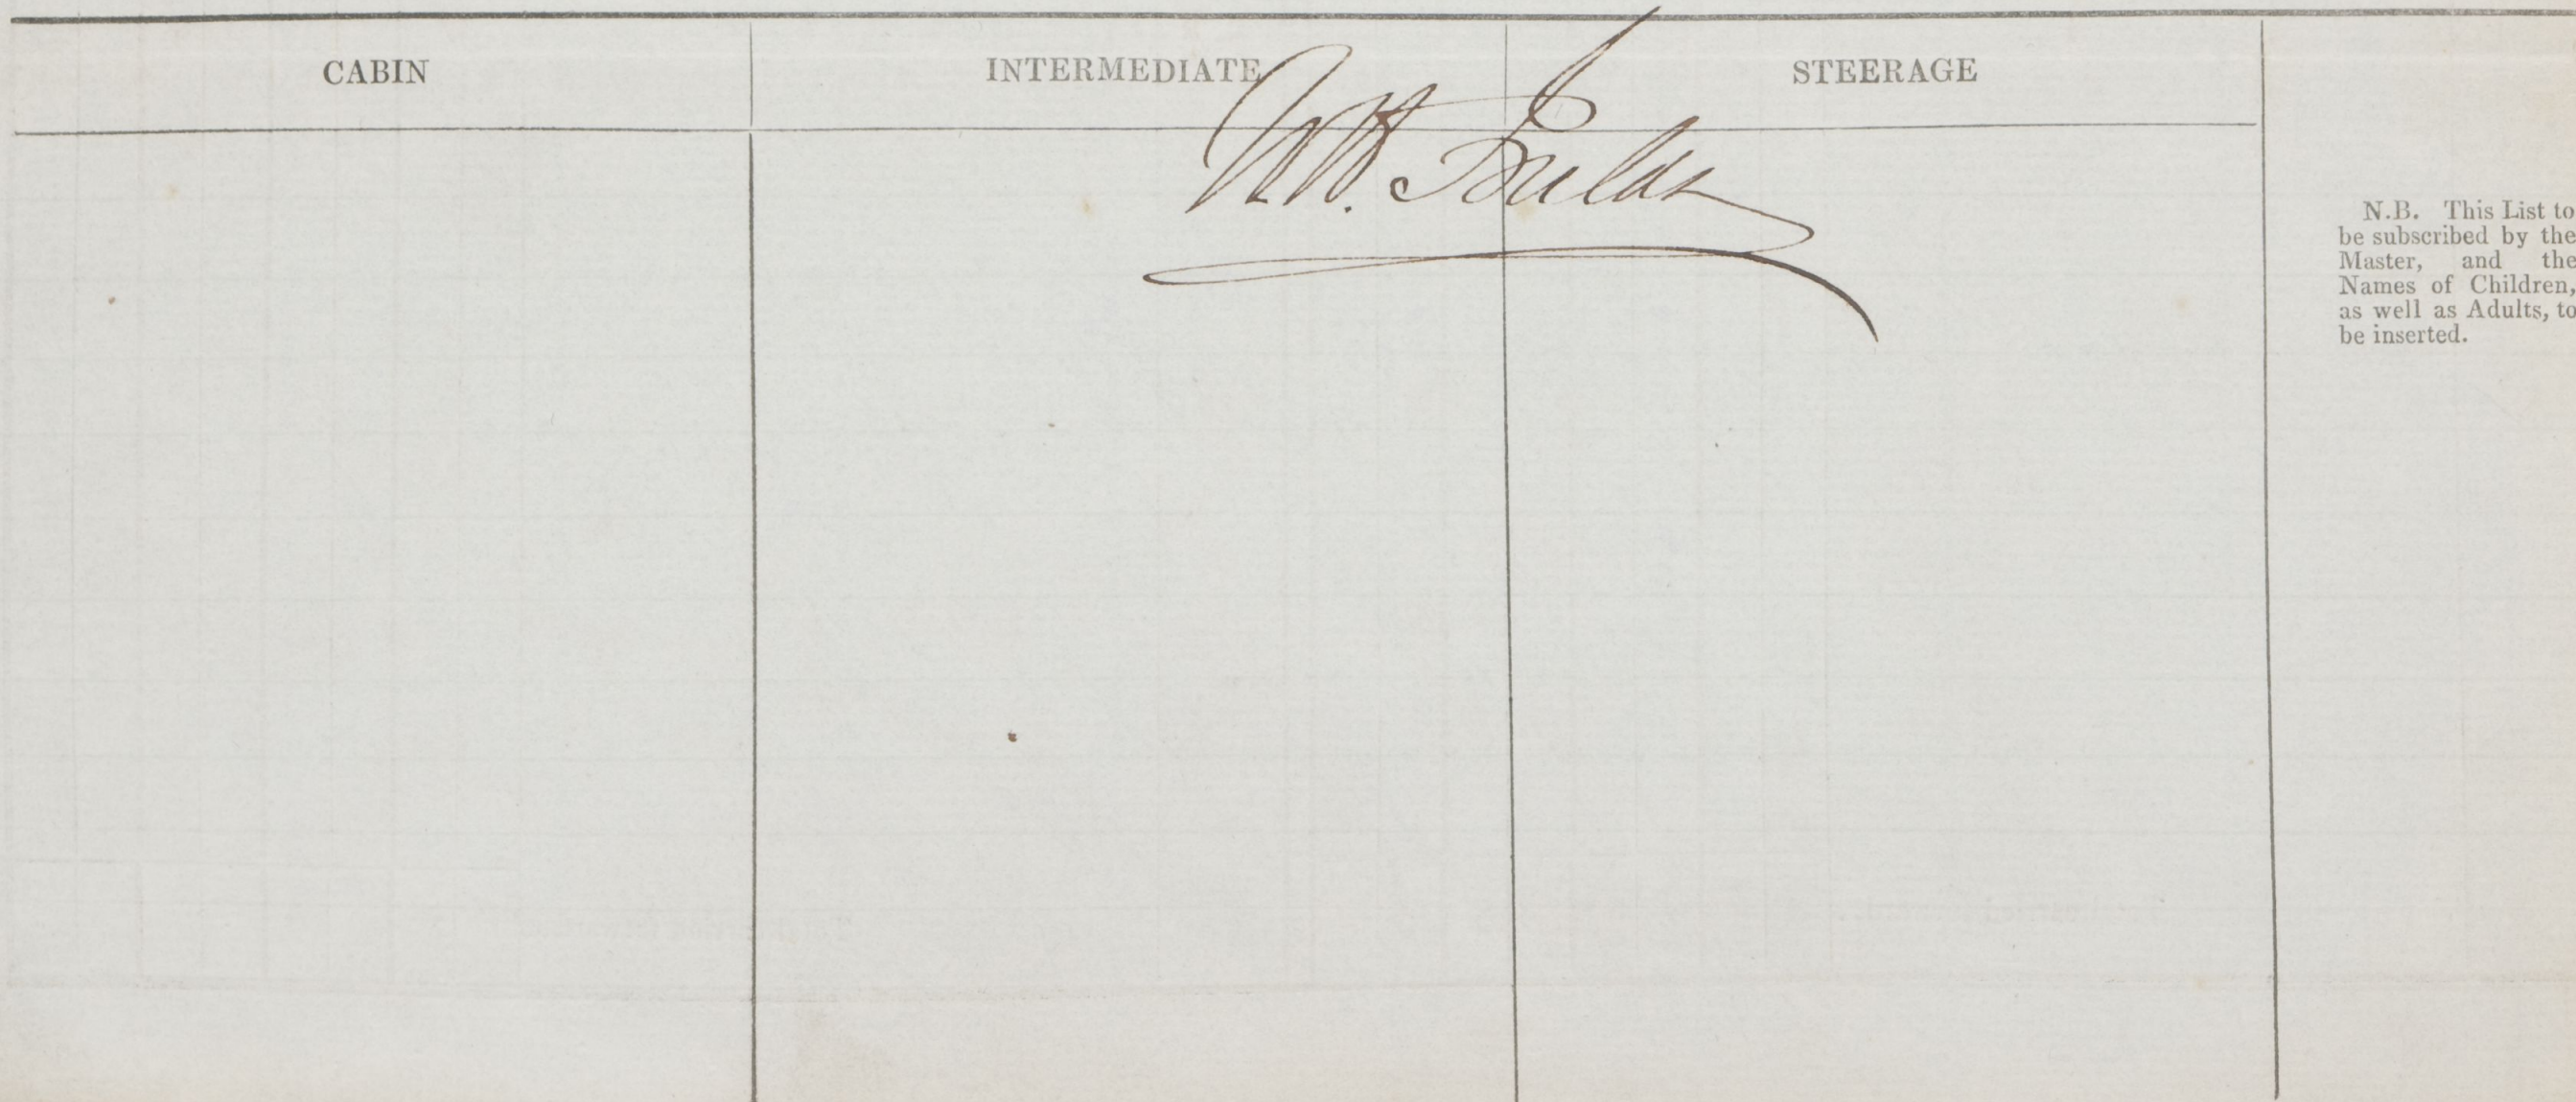 CABIN INTERMEDIATE STEERAGE
N.B. This List to
be subscribed by the
Master, and the
Names of Children,
as well as Adults, to
be inserted.